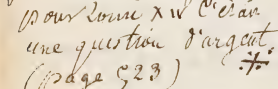 pour Louis XIV c'était
une question d'argent.
(page 523)